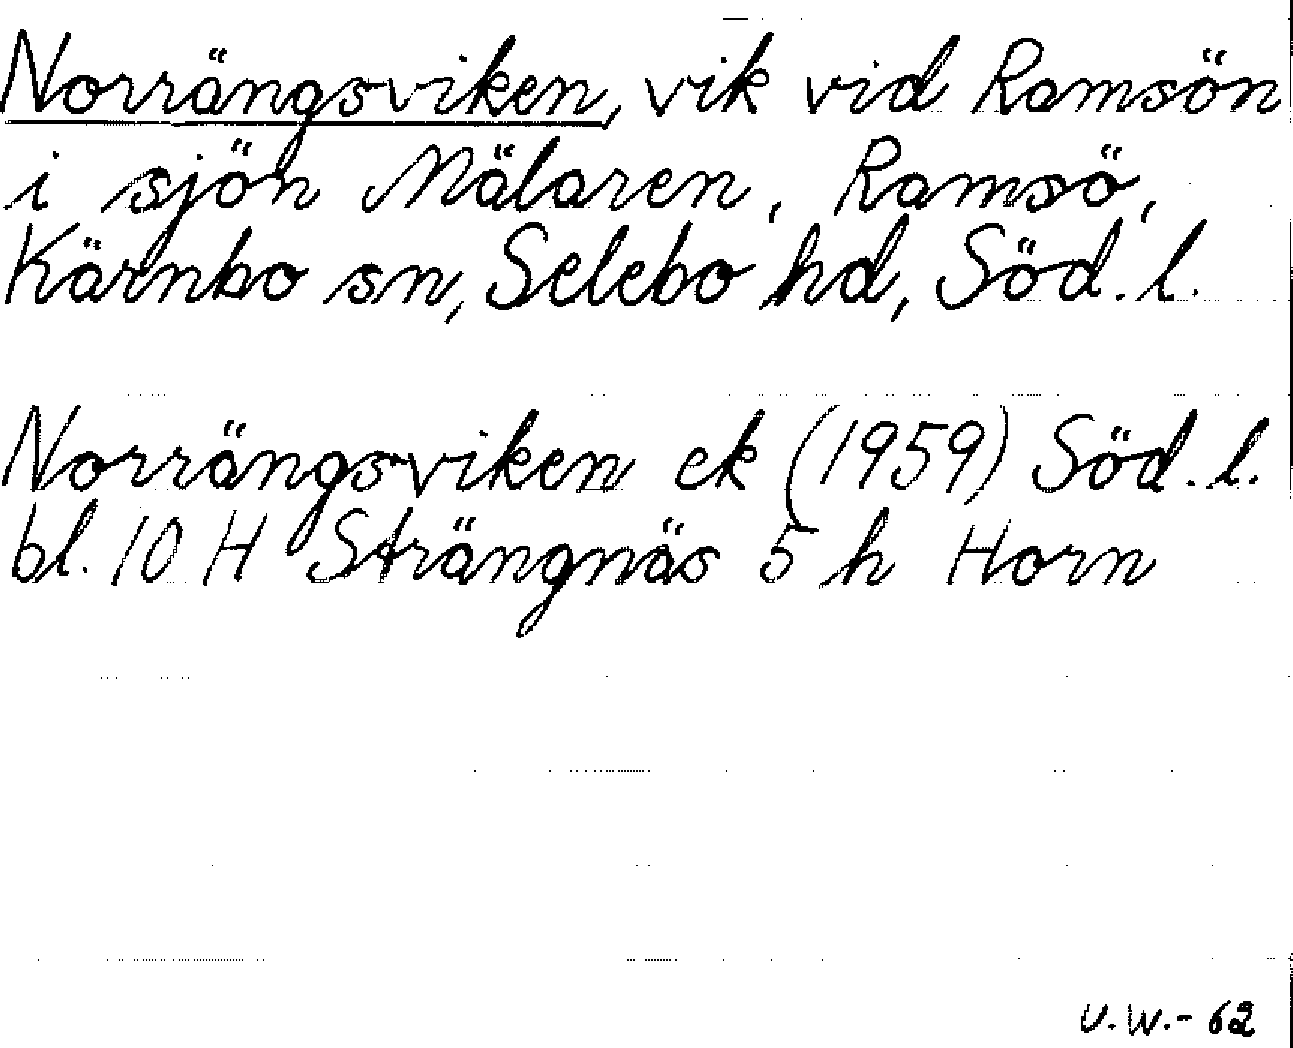 Norrängsviken, vik vid Ramsön
i sjön Mälaren, Ramsö,
Kärnbo sn, Selebo hd, Söd. l.
Norrängsviken ek (1959) Söd. l.
bl. 10 H Strängnäs 5 h Horn
U.W.- 62